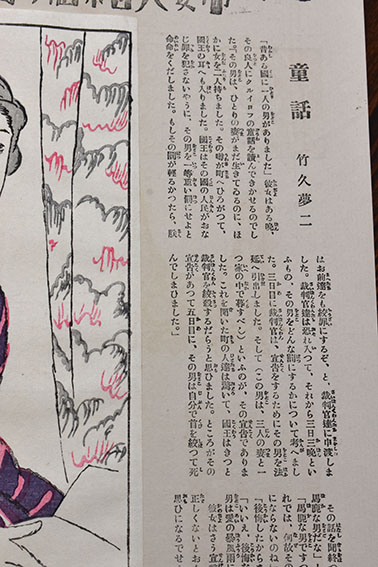 童話
竹久夢二
「昔ある國に一人の男がありました」彼女はある晩、
その良人にクルイロフの童話を讀んできかせるのでし
た。「その男は、ひとりの妻がまだ生きてゐるのに、ほ
かに女を二人持ちました。その噂が町へひろがつて、
國王の耳へも入りました。國王はその國の人民がおな
じ罪を犯さないやうに、その男を一等重い罰にせよと
命令をくだしました。もしその罰が輕るかつたら、朕
はお前達をも絞罪にするぞ、と、裁判官達に申渡しま
した。裁判官達は恐れ入つて、それから三日三晩とい
ふもの、その男をどんな罰にするかについて考へまし
た。三日目に裁判官は、宣告をするためにその男を法
廷へ引出しました。そして(この男は、三人の妻と一
つ家の中で暮すべし)といふのが、その宣告でありま
した。これを聞いた町の人達は驚いて、國王はきつと
裁判官を絞殺するだらうと思ひました。ところがその
宣告があつて五日目に、その男は自分で首を絞つて死
んでしまひました。」
その話を聞終
馬鹿な男だな」
「馬鹿な男です
れでは、何故その
にならないのね
「後悔したから
「いいえ、後悔
男は愛の暴風雨
彼女はさう言
正しくないとお
思ひになるでせ